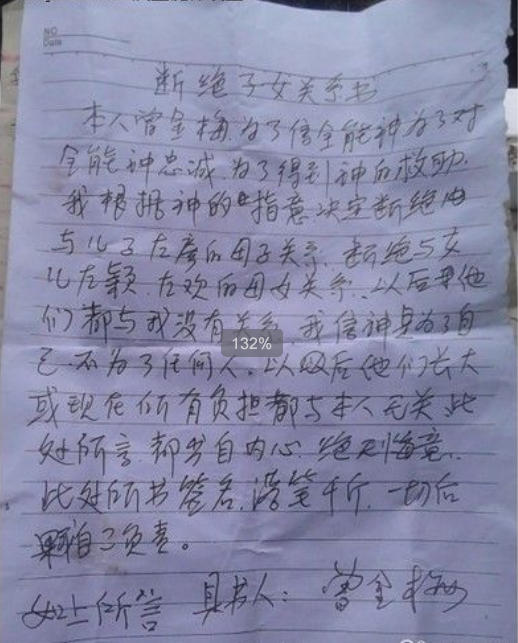 NO
Date
断绝子女关系书
本人曾金梅,为了信全能神为了对
全能神忠诚,为了得到神的救助.
我根据神的指意决定断绝
与儿子左彦的母子关系.断绝与女
儿左颖.左欢的母女关系.以后他
们都与我没有关系,我信神是为了自
己不为了任何人.以后他们长大
或现在所有负担都与本人无关此
处所言.都出自内心.绝无悔意.
此处所书签名,落笔千斤.一切后
果自己负责。
如上所言 具书人:曾金梅
132%